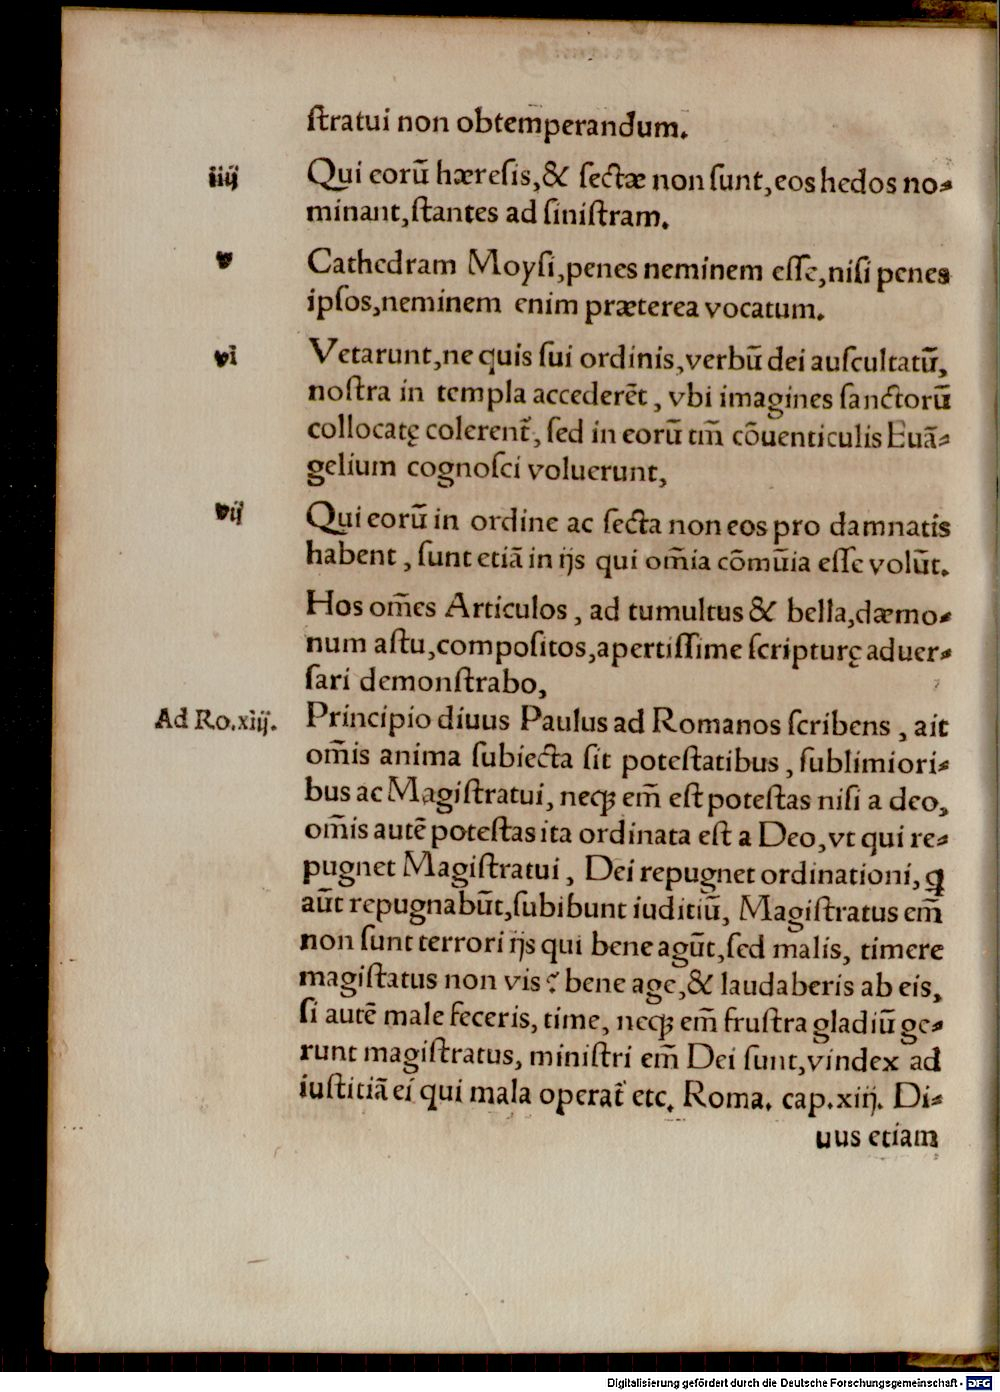 ſtratui non obtemperandum.
iiij Qui eorū hæreſis,& ſectæ non ſunt,eos hedos no⸗
minant,ſtantes ad ſiniſtram.
v Cathedram Moyſi,penes neminem eſſe,niſi penes
ipſos,neminem enim præterea vocatum.
vi Vetarunt,ne quis ſui ordinis,verbū dei auſcultatū,
noſtra in templa accederēt, vbi imagines ſanctorū
collocatę colerent̃, ſed in eorū tm̄ cōuenticulis Euā⸗
gelium cognoſci voluerunt,
vij Qui eorū in ordine ac ſecta non eos pro damnatis
habent, ſunt etiā in ijs qui om̄ia cōmūia eſſe volūt.
Hos om̄es Articulos, ad tumultus & bella,dæmo⸗
num aſtu,compoſitos,apertiſſime ſcripturę aduer⸗
ſari demonſtrabo,
Ad Ro.xiij. Principio diuus Paulus ad Romanos ſcribens, ait
om̄is anima ſubiecta ſit poteſtatibus, ſublimiori⸗
bus ac Magiſtratui, neqꝫ em̄ eſt poteſtas niſi a deo,
om̄is autē poteſtas ita ordinata eſt a Deo,vt qui re⸗
pugnet Magiſtratui, Dei repugnet ordinationi, ꝗ
aūt repugnabūt,ſubibunt iuditiū, Magiſtratus em̄
non ſunt terrori ijs qui bene agūt,ſed malis, timere
magiſtatus non vis? bene age,& laudaberis ab eis,
ſi autē male feceris, time, neqꝫ em̄ fruſtra gladiū ge⸗
runt magiſtratus, miniſtri em̄ Dei ſunt,vindex ad
iuſtitiā ei qui mala operat̃ etc. Roma. cap.xiij. Di⸗
uus etiam
Digitalisierung gefördert durch die Deutsche Forschungsgemeinschaft - DFG